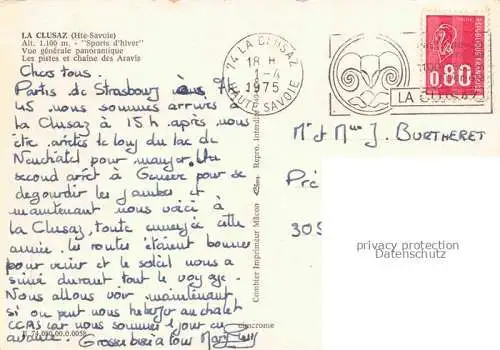 LA CLUSAZ (Hte-Savoie)
Alt. 1.100 m. - "Sports d'hiver"
Vue générale panoramique
Les pistes et chaîne des Aravis
Chers tous.
Partis de Strasbourg à 7H
45 nous sommes arrivés à
la Clusaz à 15 h. après nous
être arrêtés le long du lac de
Neuchâtel pour manger. Un
second arrêt à Genève pour se
dégourdir les jambes et
maintenant nous voici à
la Clusaz, toute enneigée cette
année. Les routes étaient bonnes
pour venir et le soleil nous a
suivi durant tout le voyage.
Nous allons voir maintenant
si on peut nous héberger au chalet
CCAS car nous sommes 1 jour en
avance. Grosses bises à tous
E. 74.080.00.0.0058
Combier Imprimeur Mâcon
Repro. Interdite
cimcrome
74 LA CLUSAZ
18 H
1-4
1975
HAUTE SAVOIE
LA CLUSAZ
REPUBLIQUE FRANÇAISE
0,80
Mr et Mme J. BURTHERET
305
privacy protection
Datenschutz